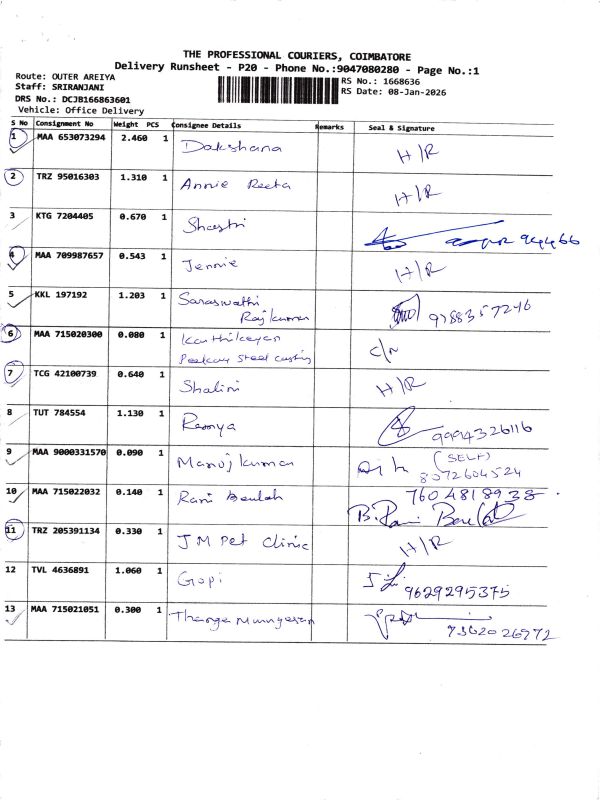 THE PROFESSIONAL COURIERS, COIMBATORE
Delivery Runsheet - P20 - Phone No.:9047080280 - Page No.:1
Route: OUTER AREIYA
RS No.: 1668636
Staff: SRIRANJANI
RS Date: 08-Jan-2026
DRS No.: DCJB166863601
Vehicle: Office Delivery
S No Consignment No Weight PCS Consignee Details Remarks Seal & Signature
1 MAA 653073294 2.460 1 Dakshana H/R
2 TRZ 95016303 1.310 1 Annie Reeta H/R
3 KTG 7204405 0.670 1 Shastri
4 MAA 709987657 0.543 1 Jennie H/R
5 KKL 197192 1.203 1 Saraswathi
Rajkumar 9788357246
6 MAA 715020300 0.080 1 Karthikeyan
Peekay Steel casting C/N
7 TCG 42100739 0.640 1 Shalini H/R
8 TUT 784554 1.130 1 Ramya 9994326116
9 MAA 9000331570 0.090 1 Manoj kumar (SELF)
8072604524
10 MAA 715022032 0.140 1 Rani Beulah 7604818938
11 TRZ 205391134 0.330 1 JM Pet Clinic H/R
12 TVL 4636891 1.060 1 Gopi 9629295375
13 MAA 715021051 0.300 1 9362026972